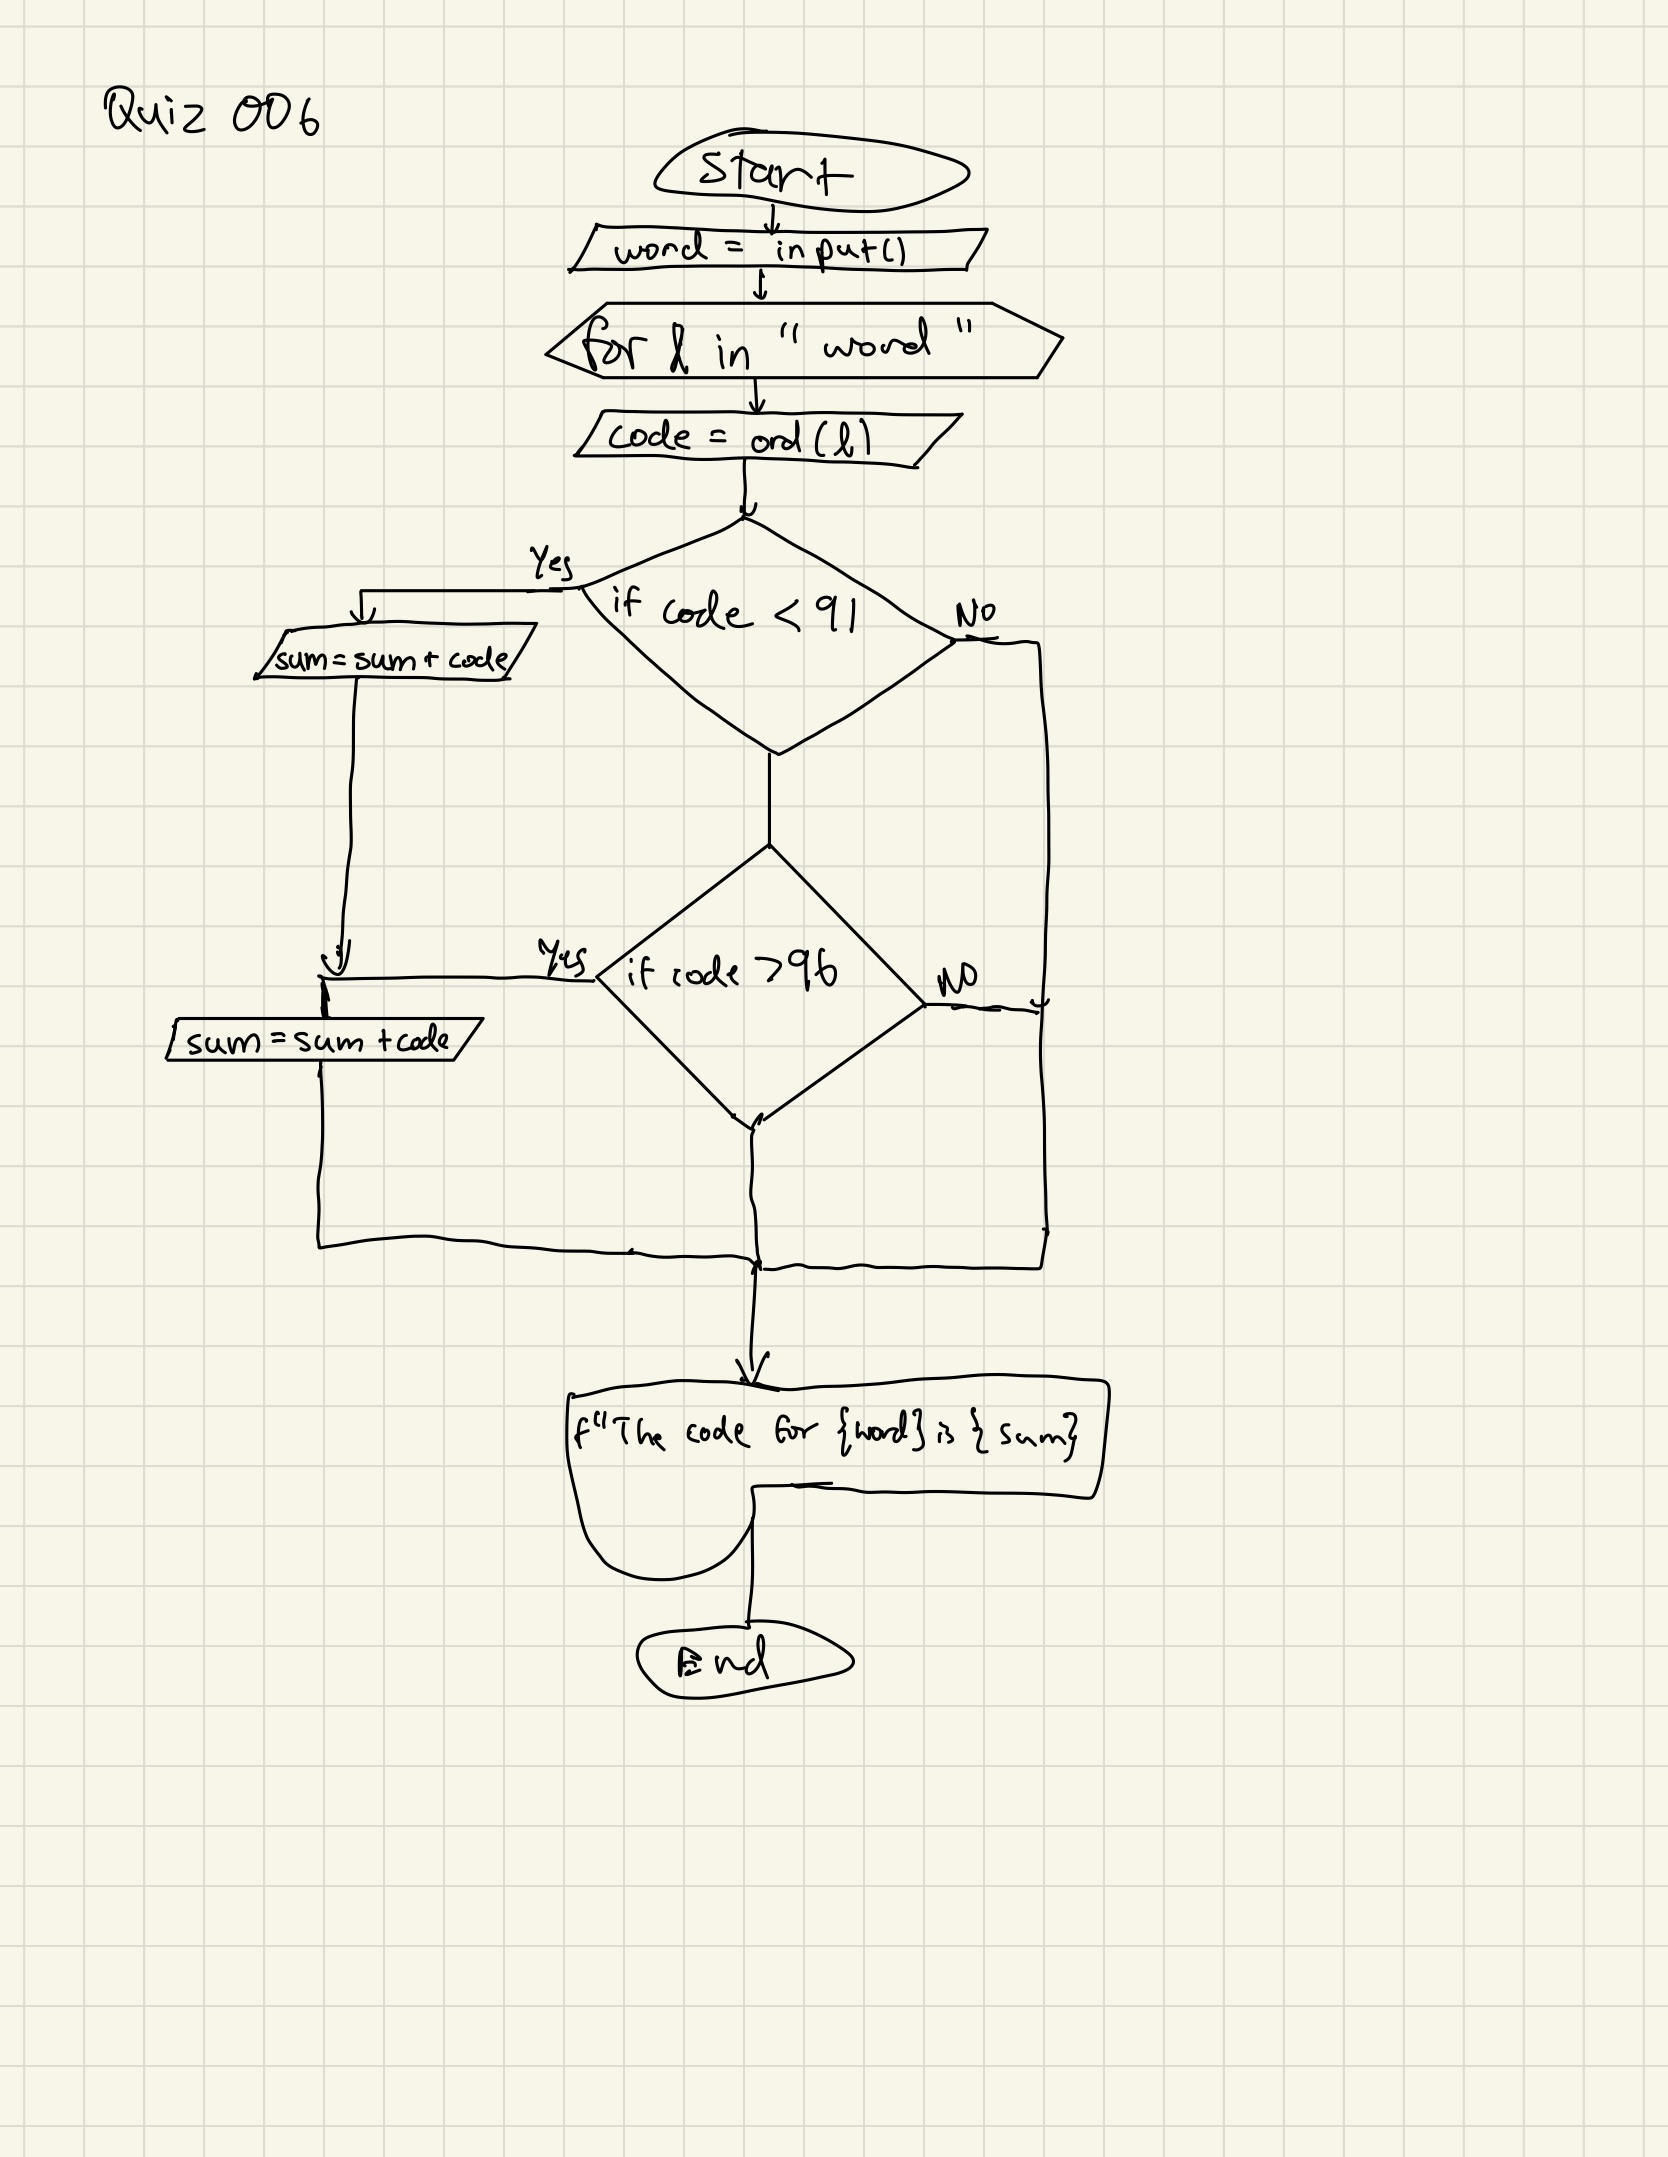 Quiz 006
Start
word = input()
for l in "word"
code = ord(l)
Yes
if code < 91
No
sum = sum + code
Yes
if code > 96
NO
sum = sum + code
f"The code for {word} is {sum}
End